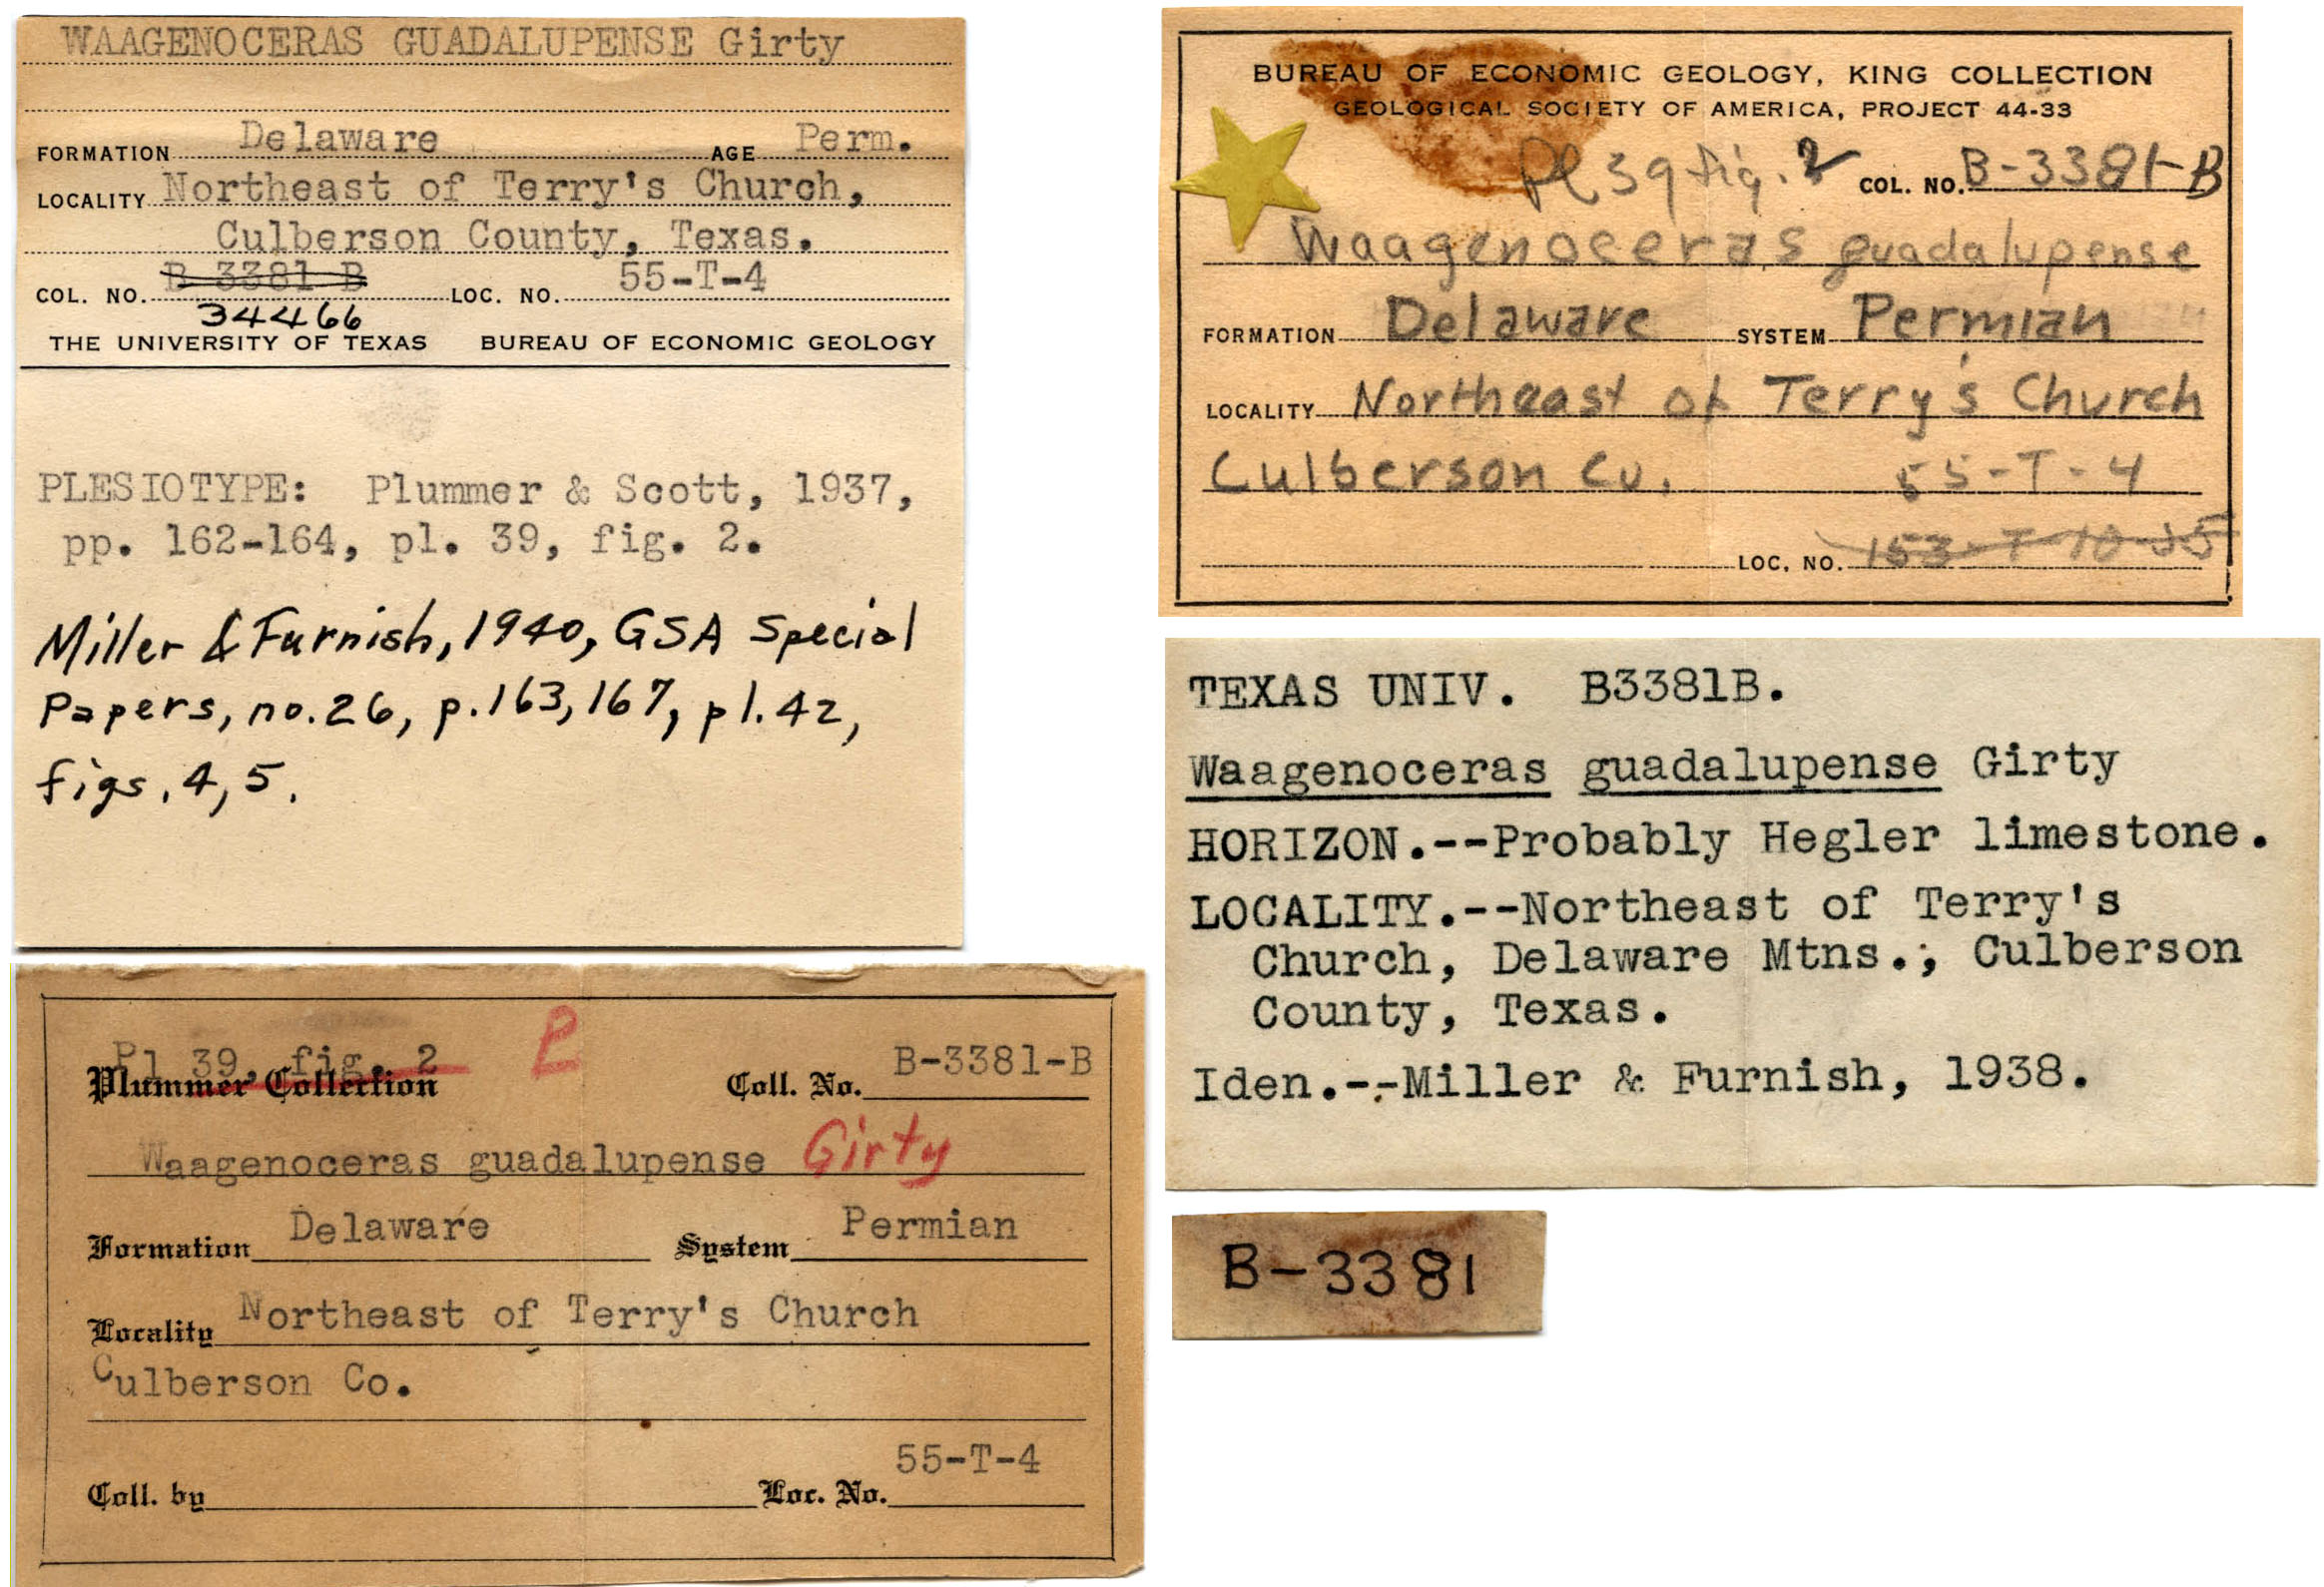 WAAGENOCERAS GUADALUPENSE Girty
FORMATION Delaware AGE Perm.
LOCALITY Northeast of Terry's Church,
Culberson County, Texas.
COL. NO. B 3381 B LOC. NO. 55-T-4
34466
THE UNIVERSITY OF TEXAS BUREAU OF ECONOMIC GEOLOGY
PLESIOTYPE: Plummer & Scott, 1937,
pp. 162-164, pl. 39, fig. 2.
Miller & Furnish, 1940, GSA Special
Papers, no. 26, p. 163, 167, pl. 42,
figs. 4, 5.
BUREAU OF ECONOMIC GEOLOGY, KING COLLECTION
GEOLOGICAL SOCIETY OF AMERICA, PROJECT 44-33
Pl 39 fig. 2 COL. NO. B-3381-B
Waagenoceras guadalupense
FORMATION Delaware SYSTEM Permian
LOCALITY Northeast of Terry's Church
Culberson Co. 55-T-4
LOC. NO. 153-T-10-35
TEXAS UNIV. B3381B.
Waagenoceras guadalupense Girty
HORIZON.--Probably Hegler limestone.
LOCALITY.--Northeast of Terry's
Church, Delaware Mtns.; Culberson
County, Texas.
Iden.--Miller & Furnish, 1938.
B-3381
Pl 39, fig. 2 P
Plummer Collection Coll. No. B-3381-B
Waagenoceras guadalupense Girty
Formation Delaware System Permian
Locality Northeast of Terry's Church
Culberson Co.
Coll. by Loc. No. 55-T-4